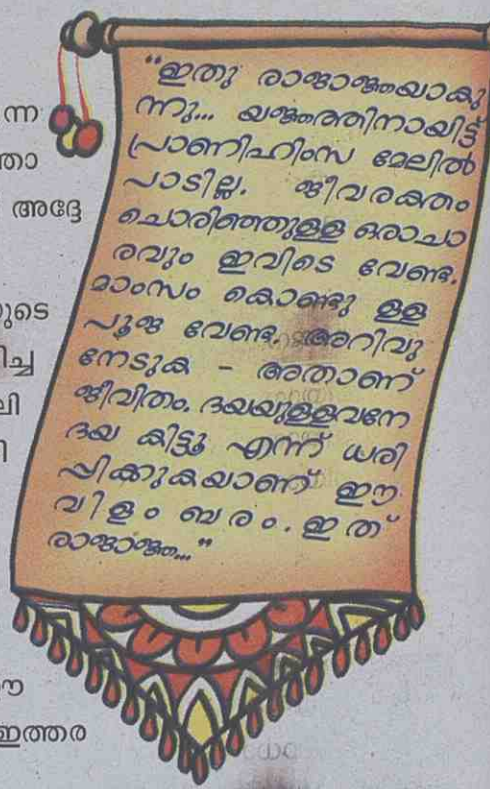 ന്ന
ത്താ
അദ്ദേ
യുടെ
രിച്ച
ലി
ി
ഈ
ഇത്തര
"ഇതു രാജാജ്ഞയാകു
ന്നു... യജ്ഞത്തിനായിട്ട്
പ്രാണിഹിംസ മേലിൽ
പാടില്ല. ജീവരക്തം
ചൊരിഞ്ഞുള്ള ഒരാചാ
രവും ഇവിടെ വേണ്ട.
മാംസം കൊണ്ടു ള്ള
പൂജ വേണ്ട. അറിവു
നേടുക - അതാണ്
ജീവിതം. ദയയുള്ളവനേ
ദയ കിട്ടൂ എന്ന് ധരി
പ്പിക്കുകയാണ് ഈ
വിളം ബരം. ഇത്
രാജാജ്ഞ..."